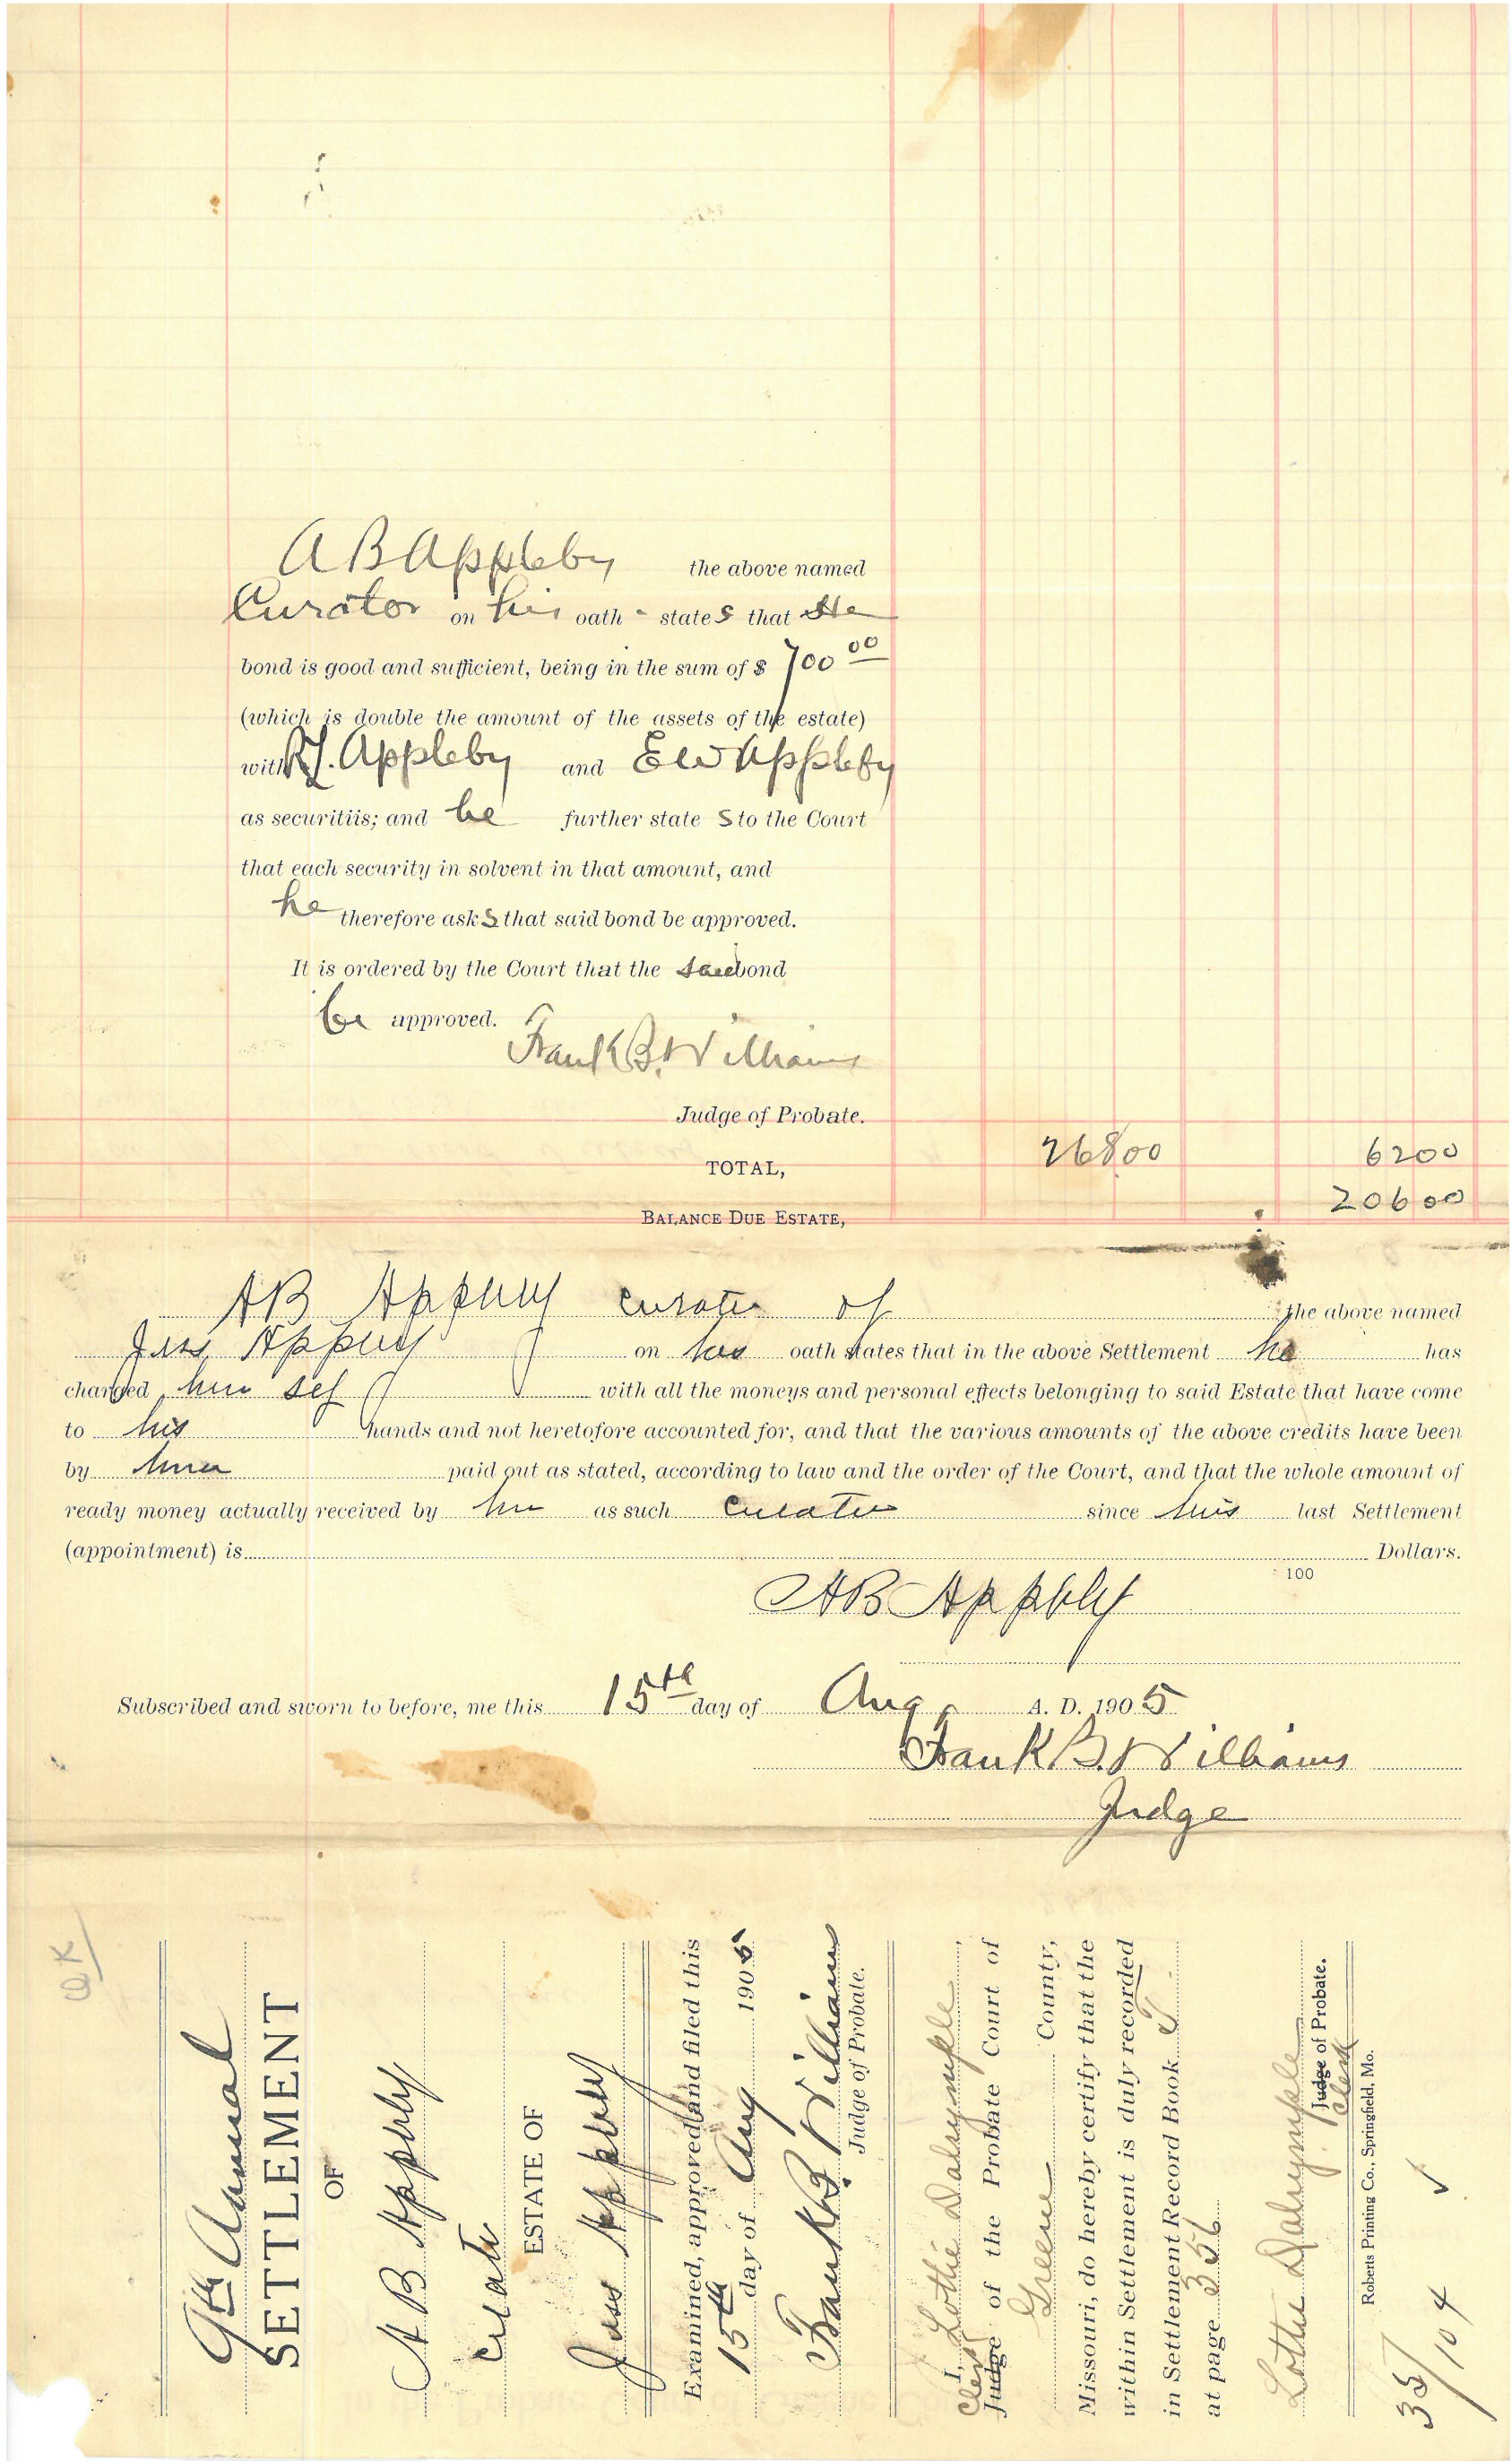 A B Appleby the above named
Curator on his oath - states that He
bond is good and sufficient, being in the sum of $ 700 00
(which is double the amount of the assets of the estate)
with R.J. Appleby and E W Appleby
as securitiis; and he further state s to the Court
that each security in solvent in that amount, and
he therefore ask s that said bond be approved.
It is ordered by the Court that the said bond
be approved.
Frank B. Williams
Judge of Probate.
TOTAL, 26800 6200
BALANCE DUE ESTATE, 20600
A B Appleby curator of the above named
Jess Appleby on his oath states that in the above Settlement he has
charged him self with all the moneys and personal effects belonging to said Estate that have come
to his hands and not heretofore accounted for, and that the various amounts of the above credits have been
by him paid out as stated, according to law and the order of the Court, and that the whole amount of
ready money actually received by him as such curator since his last Settlement
(appointment) is Dollars.
100
A B Appleby
Subscribed and sworn to before, me this 15th day of Aug A. D. 1905
Frank B. Williams
Judge
OK
9th Annual
SETTLEMENT
OF
A B Appleby
Curator
ESTATE OF
Jess Appleby
Examined, approved and filed this
15th day of Aug 1905
Frank B. Williams
Judge of Probate.
I, Lottie Dalrymple,
Clerk
Judge of the Probate Court of
Greene County,
Missouri, do hereby certify that the
within Settlement is duly recorded
in Settlement Record Book T
at page 356
Lottie Dalrymple
Judge of Probate.
Clerk
Roberts Printing Co., Springfield, Mo.
35/104